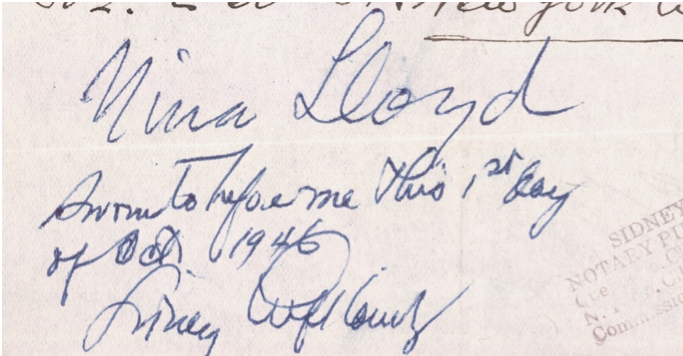 New York
Nina Lloyd
Sworn to before me this 1st day
of Oct 1946
Sidney
SIDNEY
NOTARY PU
N.
Commissio